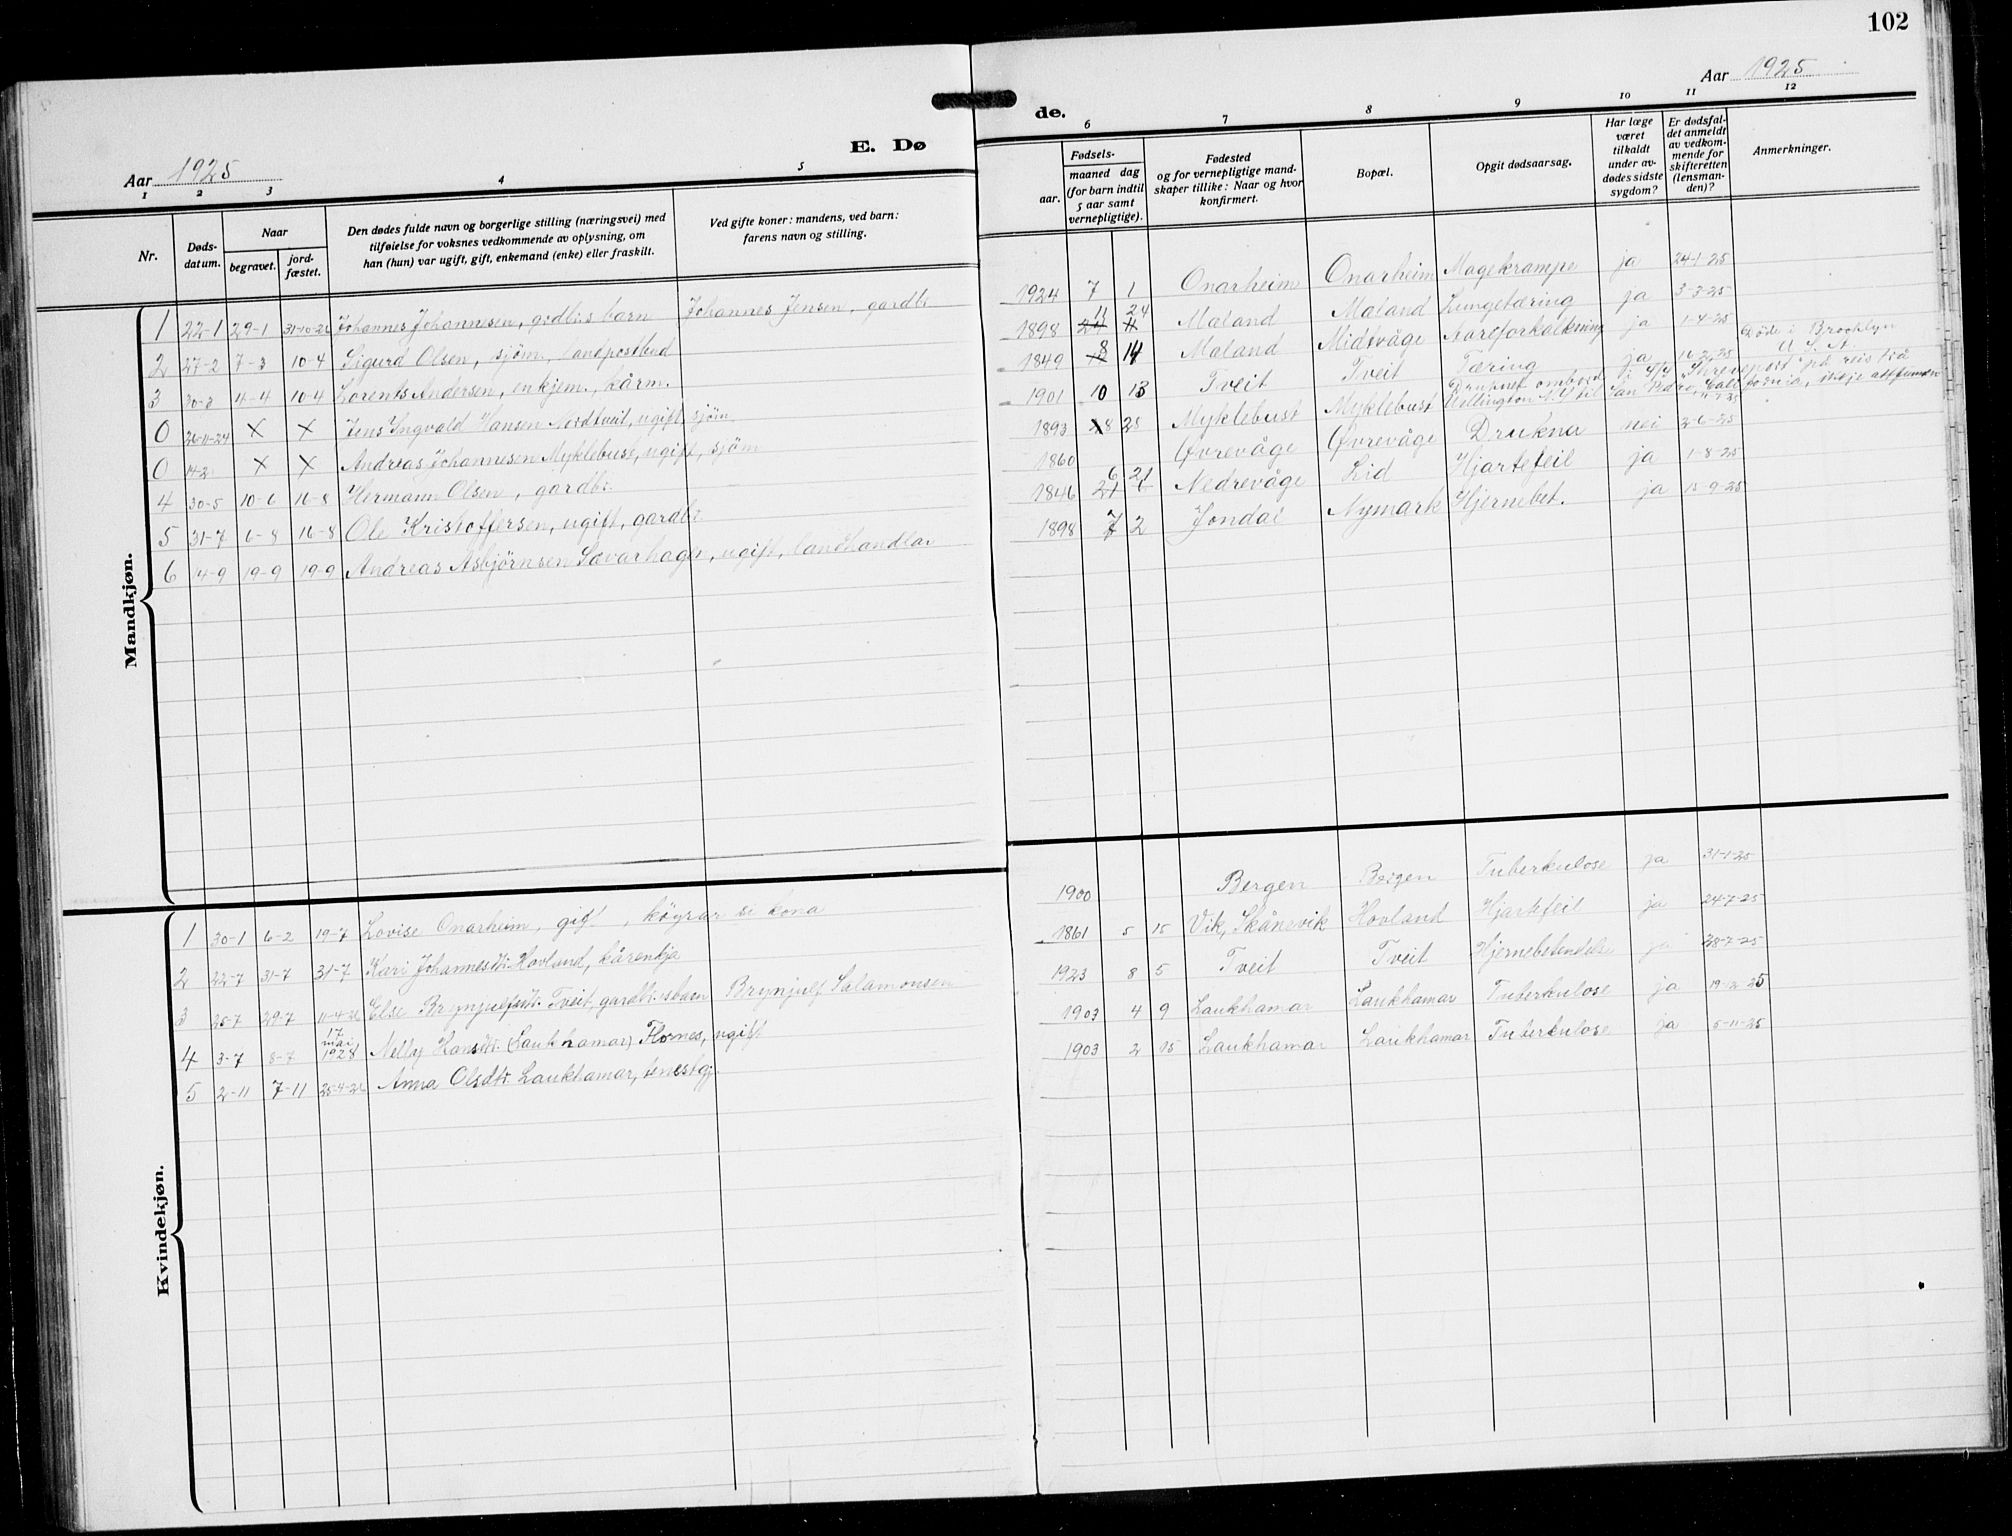 102
Aar 1925
E. Dø
1 2 3 4 5
Nr.
Døds-
datum.
Naar
begravet.
jord-
fæstet.
Den dødes fulde navn og borgerlige stilling (næringsvei) med
tilføielse for voksnes vedkommende av oplysning, om
han (hun) var ugift, gift, enkemand (enke) eller fraskilt.
Ved gifte koner: mandens, ved barn:
farens navn og stilling.
Mandkjøn.
1 22-1 29-1 31-10-26 Johannes Johannesen, grdbr.s barn Johannes Jensen, gardbr
2 27-2 7-3 10-4 Sigurd Olsen, sjøm., landpostbud
3 30-3 4-4 10-4 Lorents Andersen, enkjem., kårm.
0 26-11-24 X X Jens Ingvald Hansen Nordtveit, ugift, sjøm
0 14-2 X X Andreas Johannesen Myklebust, ugift, sjøm
4 30-5 10-6 16-8 Hermann Olsen, gardbr.
5 31-7 6-8 16-8 Ole Kristoffersen, ugift, gardbr
6 14-9 19-9 19-9 Andreas Asbjørnsen Sævarhagen, ugift, landhandlar
Kvindekjøn.
1 30-1 6-2 19-7 Lovise Onarheim, gift, køyrar si kona
2 22-7 31-7 31-7 Kari Johannesdtr. Hovland, kårenkja
3 25-7 29-7 11-4-26 Else Brynjulfsdtr. Tveit, gardbr.sbarn Brynjulf Salamonsen
4 3-7 8-7 17 mai 1928 Nelly Hansdtr. (Laukhamar) Flornes, ugift
5 2-11 7-11 25-4-26 Anna Olsdtr. Laukhamar, tenestgj.
de.
Aar 1925
6 7 8 9 10 11 12
aar.
Fødsels-
maaned dag
(for barn indtil
5 aar samt
vernepligtige).
Fødested
og for vernepligtige mand-
skaper tillike: Naar og hvor
konfirmert.
Bopæl.
Opgit dødsaarsag.
Har læge
været
tilkaldt
under av-
dødes sidste
sygdom?
Er dødsfal-
det anmeldt
av vedkom-
mende for
skifteretten
(lensman-
den)?
Anmerkninger.
1924 7 1 Onarheim Onarheim Magekrampe ja 24-1-25
1898 11 24 Maland Maland Lungetæring ja 3-3-25
1849 8 14 Maland Midtvåge Aareforkalkning ja 1-4-25
1901 10 13 Tveit Tveit Tæring ja 16-2-25 Døde i Brooklyn U. S. A.
1893 8 25 Myklebust Myklebust Druknet ombord i S/S "Shreveport" på reis frå Wellington N.Z til San Pedro, California,
1860 Øvrevåge Øvrevåge Drukna nei 2-6-25
1846 6 21 Nedrevåge Lid Hjartefeil ja 1-8-25
1898 7 2 Jondal Nymark Hjernebet. ja 15-9-25
1900 Bergen Bergen Tuberkulose ja 31-1-25
1861 5 15 Vik, Skånevik Hovland Hjartefeil ja 24-7-25
1923 8 5 Tveit Tveit Hjernebetendelse ja 28-7-25
1903 4 9 Laukhamar Laukhamar Tuberkulose ja 19-12-25
1903 2 15 Laukhamar Laukhamar Tuberkulose ja 5-11-25